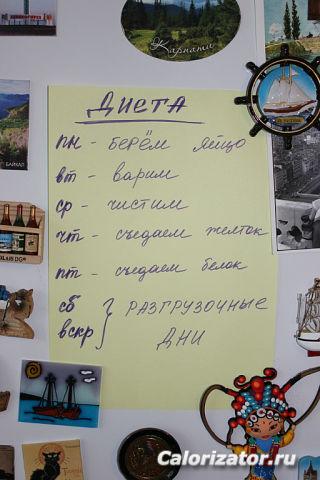 Карпати
ДИЕТА
пн - берём яйцо
вт - варим
БАЙКАЛ
ср - чистим
чт - съедаем желток
пт - съедаем белок
сб } РАЗГРУЗОЧНЫЕ
вскр ДНИ
Calorizator.ru